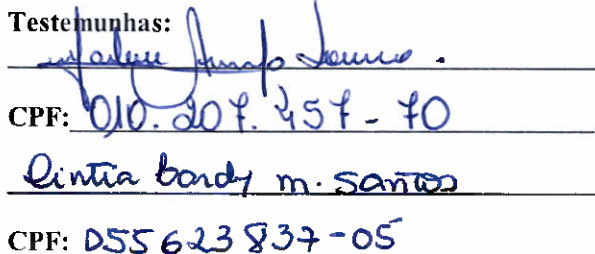 Testemunhas:
CPF: 010.207.457-70
Cintia Bardy m. Santos
CPF: 055623837-05